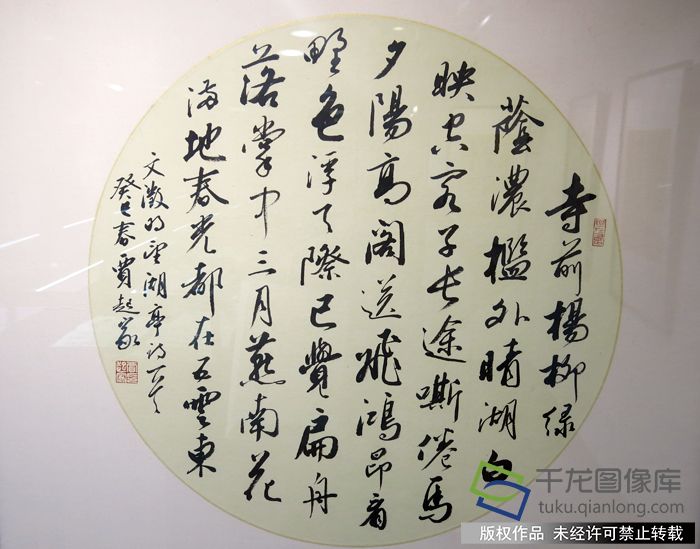 寺前楊柳绿
蔭濃檻外晴湖白
映空客子长途嘶倦馬
夕陽高閣送飛鴻即看
野色浮天際已覺扁舟
落掌中三月燕南花
满地春光都在五雲東
文徵明望湖亭诗
癸巳春賈起家
千龙图像库
tuku.qianlong.com
版权作品 未经许可禁止转载